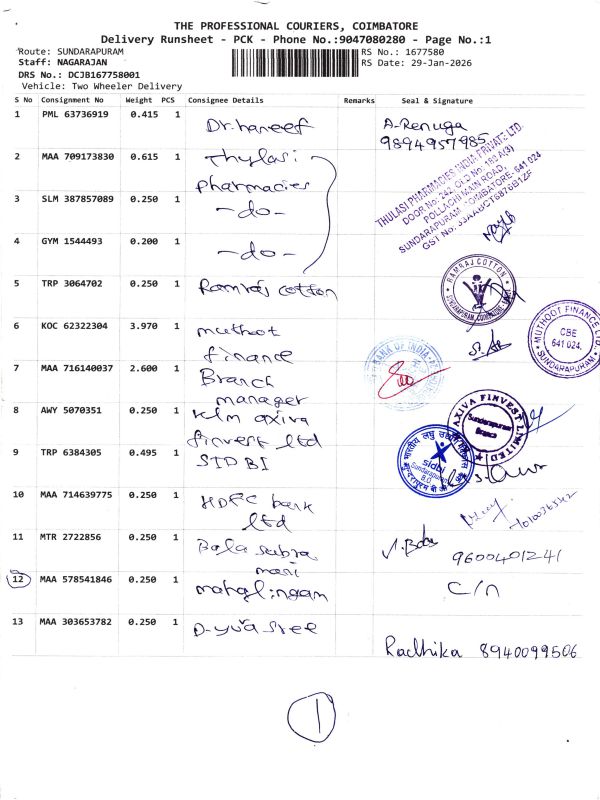 THE PROFESSIONAL COURIERS, COIMBATORE
Delivery Runsheet - PCK - Phone No.:9047080280 - Page No.:1
Route: SUNDARAPURAM
RS No.: 1677580
Staff: NAGARAJAN
RS Date: 29-Jan-2026
DRS No.: DCJB167758001
Vehicle: Two Wheeler Delivery
S No Consignment No Weight PCS Consignee Details Remarks Seal & Signature
1 PML 63736919 0.415 1 Dr. haneef A-Renuga
9894957985
2 MAA 709173830 0.615 1 Thylasi
pharmacies
THULASI PHARMACIES INDIA PRIVATE LTD.
DOOR No: 242, OLD No: 182 A(3)
POLLACHI MAIN ROAD,
SUNDARAPURAM, COIMBATORE- 641 024
GST No: 33AABCT5875B1ZF
3 SLM 387857089 0.250 1 -do-
4 GYM 1544493 0.200 1 -do-
5 TRP 3064702 0.250 1 Ramraj cotton
RAMRAJ COTTON
6 KOC 62322304 3.970 1 muthoot
finance
MUTHOOT FINANCE LTD.
CBE
641 024.
SUNDARAPURAM
7 MAA 716140037 2.600 1 Branch
manager
BANK OF INDIA
8 AWY 5070351 0.250 1 klm axiva
finvest ltd
AXIVA FINVEST LIMITED
Sundarapuram
Branch
9 TRP 6384305 0.495 1 SIDBI
sidbi
Sundarapuram
B.O
10 MAA 714639775 0.250 1 HDFC bank
ltd
11 MTR 2722856 0.250 1 Bala subra
mani
9600401241
12 MAA 578541846 0.250 1 mahalingam C/n
13 MAA 303653782 0.250 1 D-yuva sree
Radhika 8940099506
1